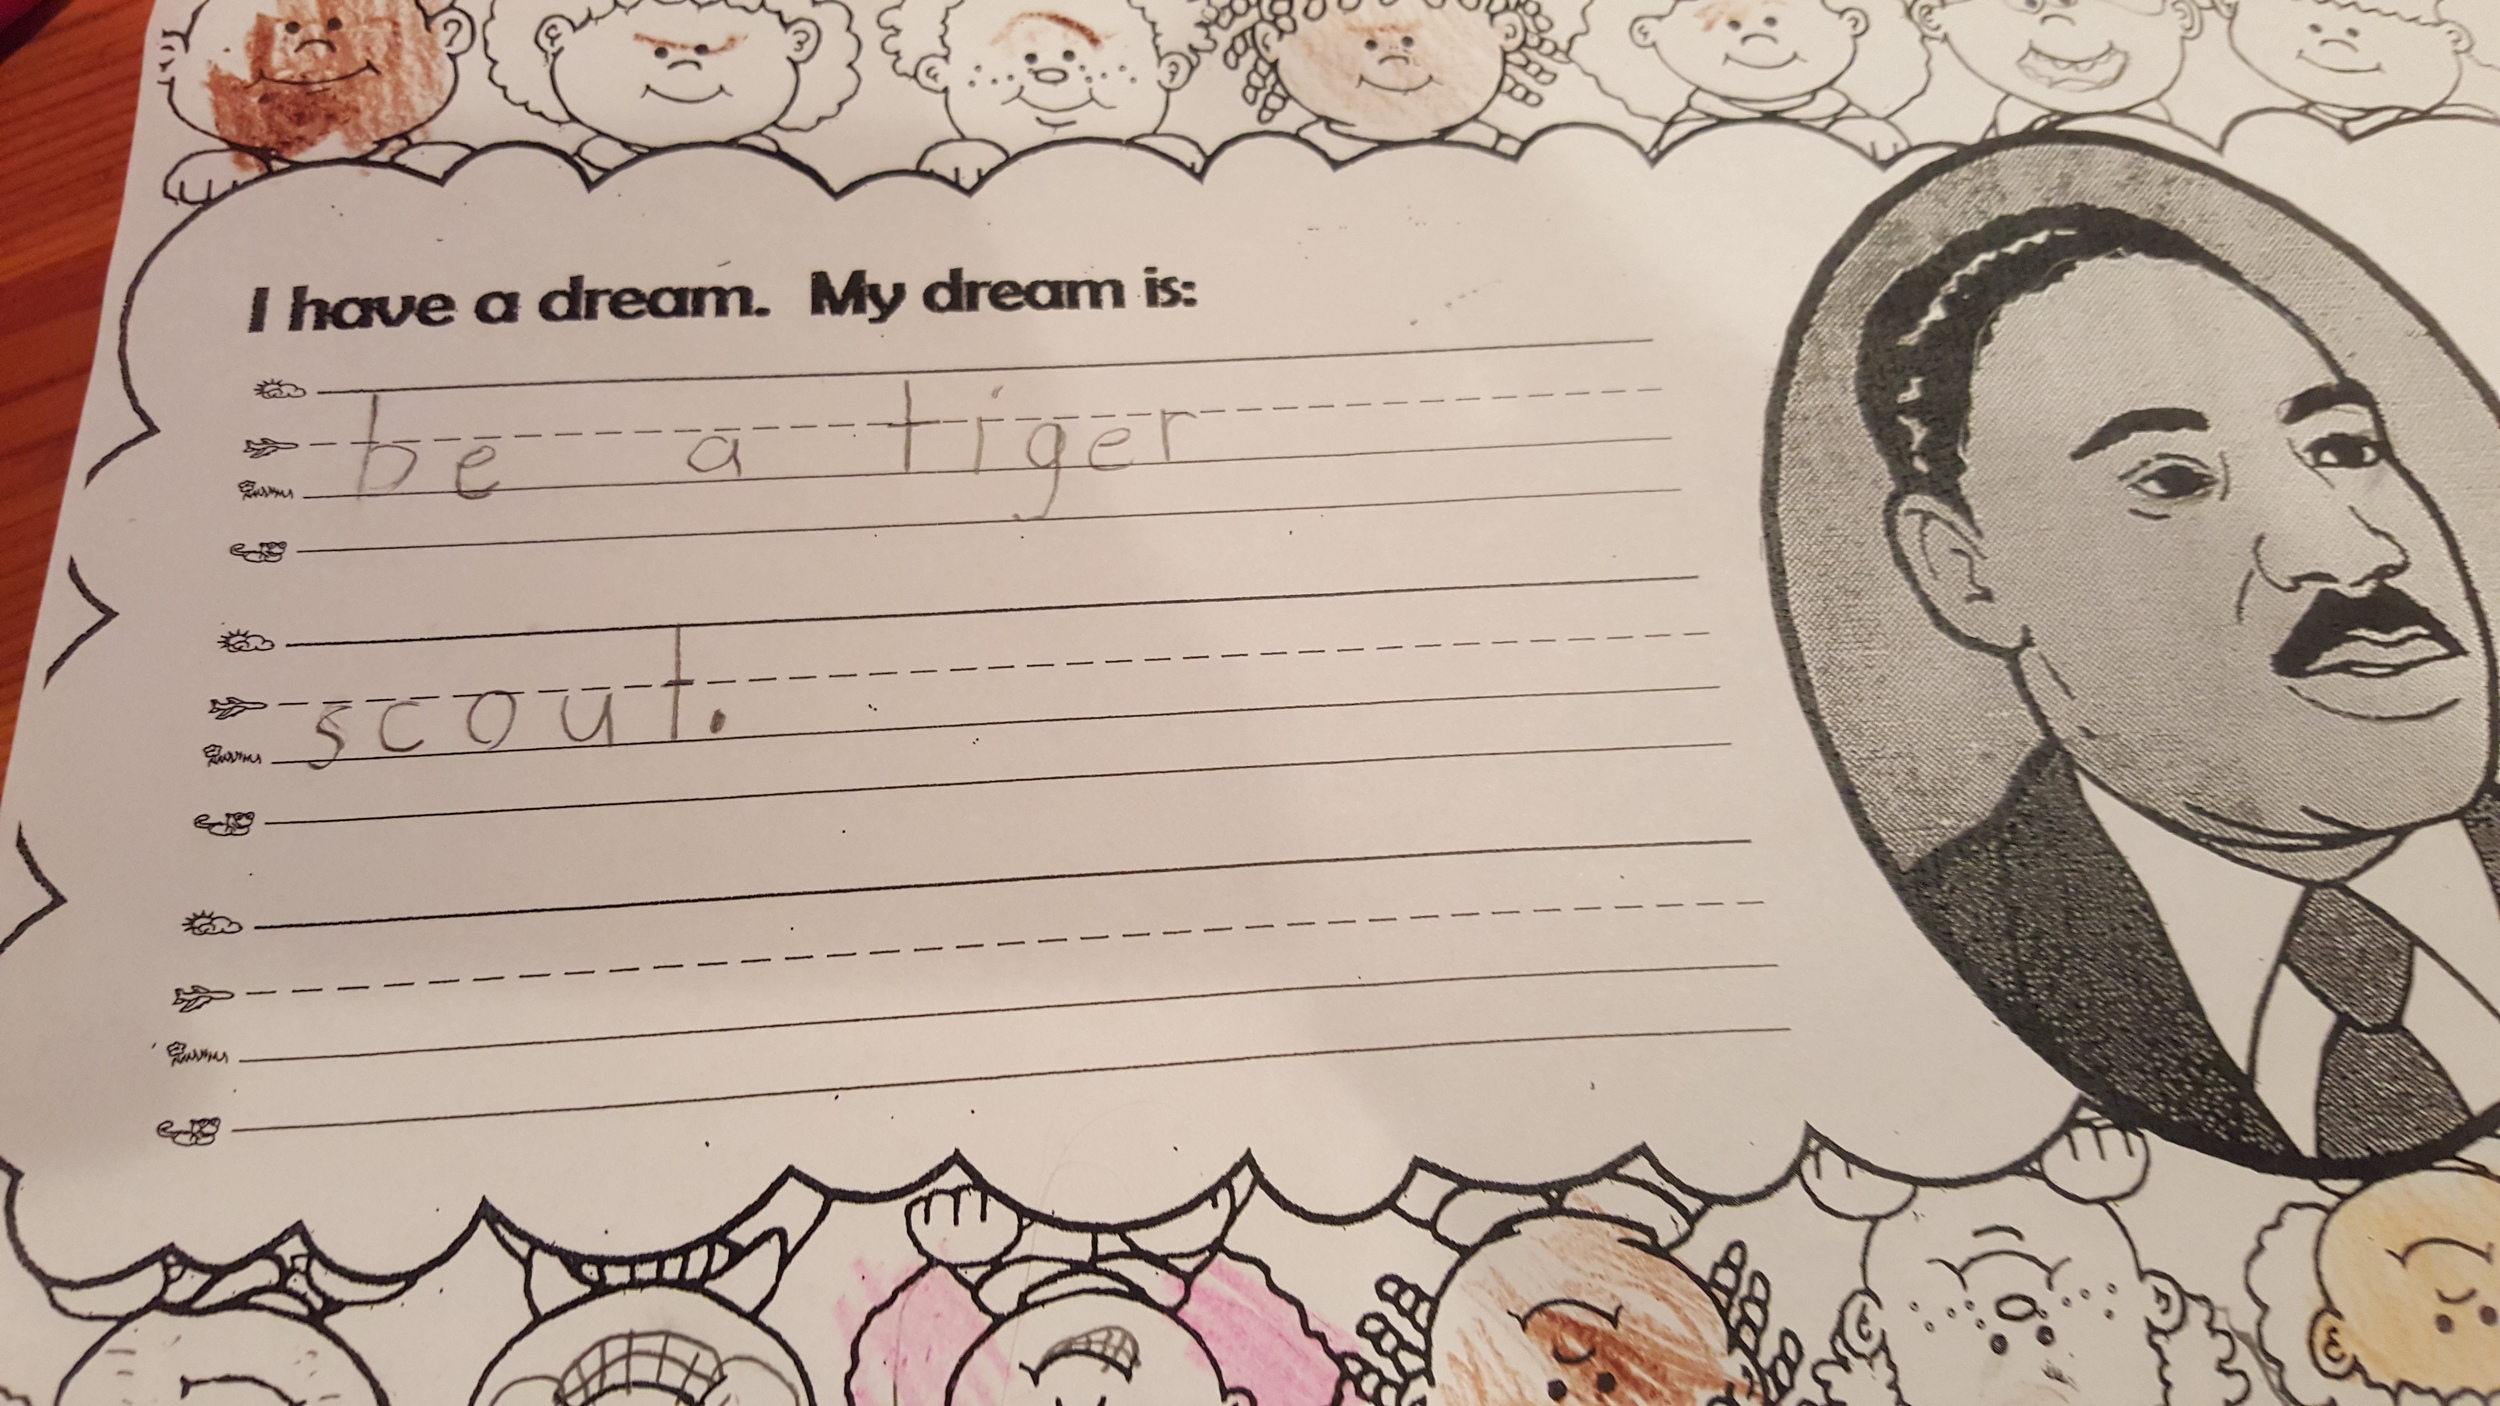 I have a dream. My dream is:
be a tiger
scout.